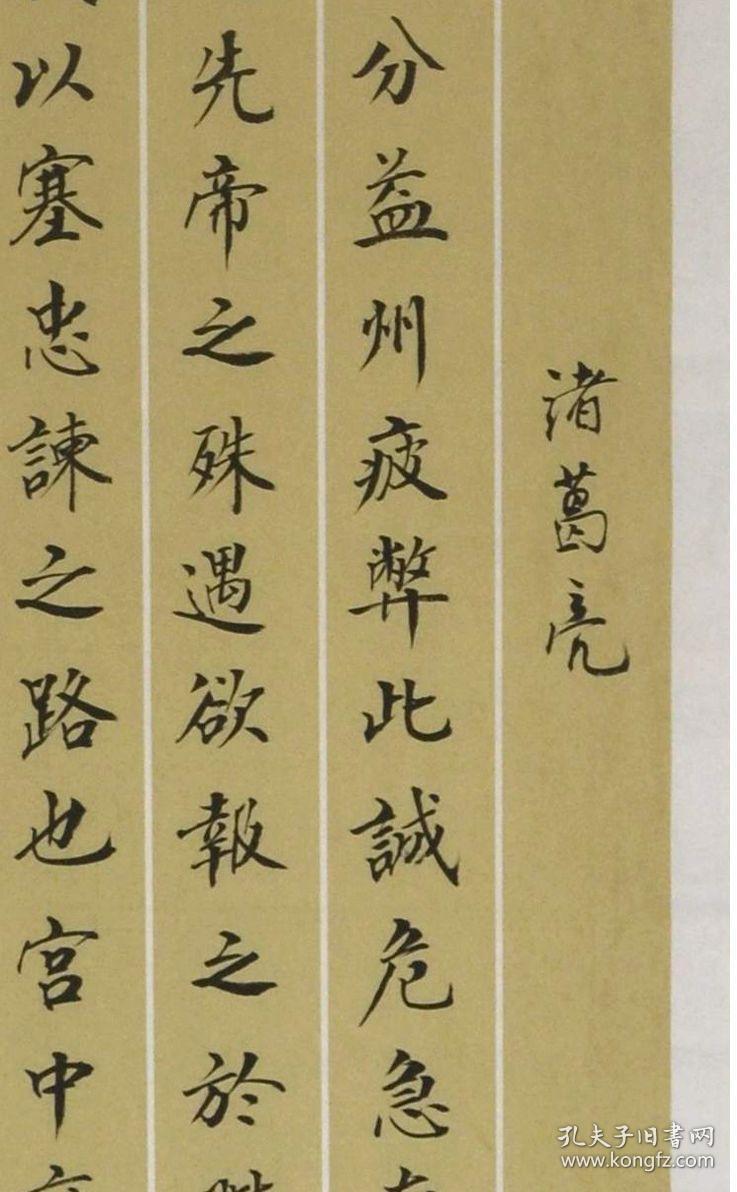 诸葛亮
分益州疲弊此誠危急
先帝之殊遇欲報之於
以塞忠諫之路也宫中
孔夫子旧書网
www.kongfz.com